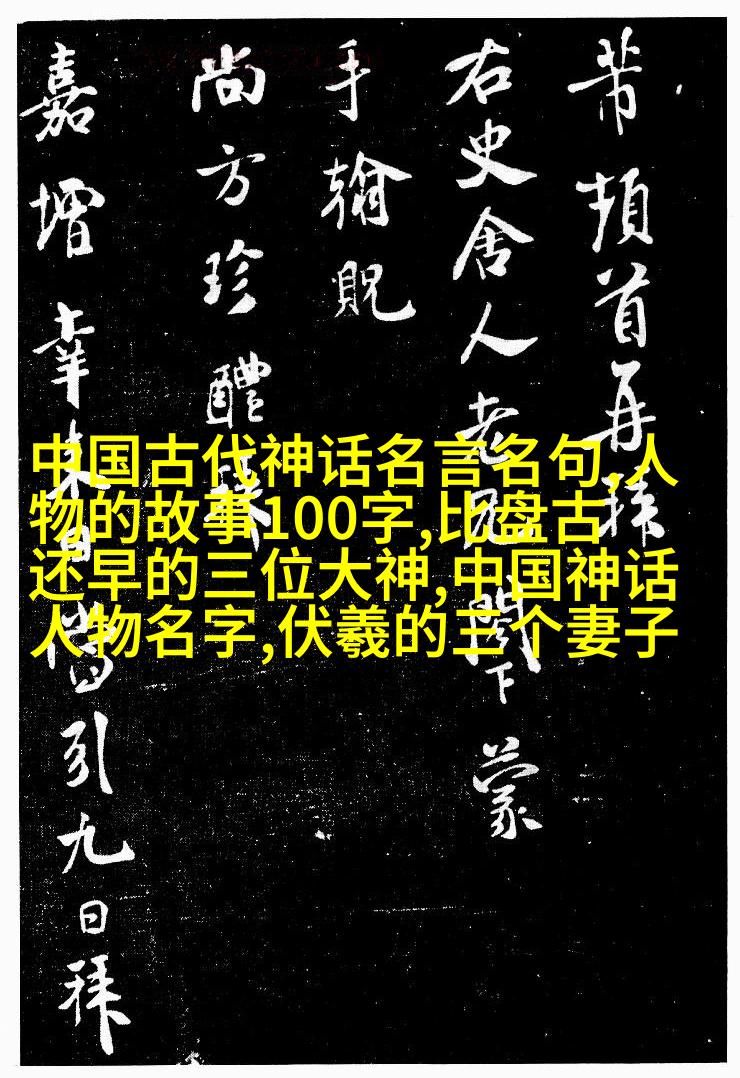 芾頓首再拜
右史舍人老兄閣下蒙
手翰貺
尚方珍醴
嘉增幸日當引九日拜
中国古代神话名言名句,人
物的故事100字,比盘古
还早的三位大神,中国神话
人物名字,伏羲的三个妻子